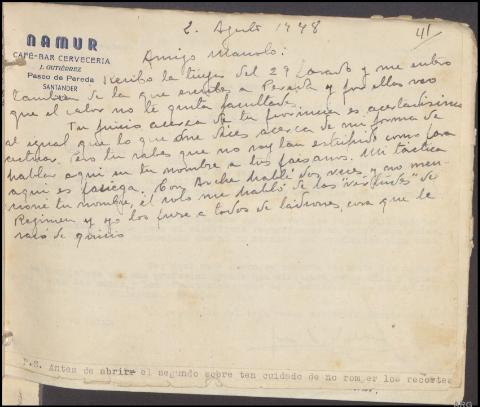 2 Agosto 1948
41
NAMUR
CAFÉ-BAR CERVECERIA
J. GUTIÉRREZ
Paseo de Pereda
SANTANDER
Amigo Manolo:
Recibo la tuya del 29 pasado y me entero
tambien de la que escribes a Pereda y por ellas veo
que el calor no te quita facultades.
Tu juicio acerca de tu provincia es acertadisimo
al igual que lo que me dices acerca de mi forma de
actuar. Pero tu sabes que no soy tan estupido como para
hablar aqui en tu nombre a tus paisanos. Mi tactica
aqui es pasiega. Con hablé dos veces, y no men-
cioné tu nombre, él solo me habló de las "virtudes" de
Regimen y yo los puse a todos de ladrones, cosa que le
sacó de quicio
P.S. Antes de abrir el segundo sobre ten cuidado de no romper los recortes